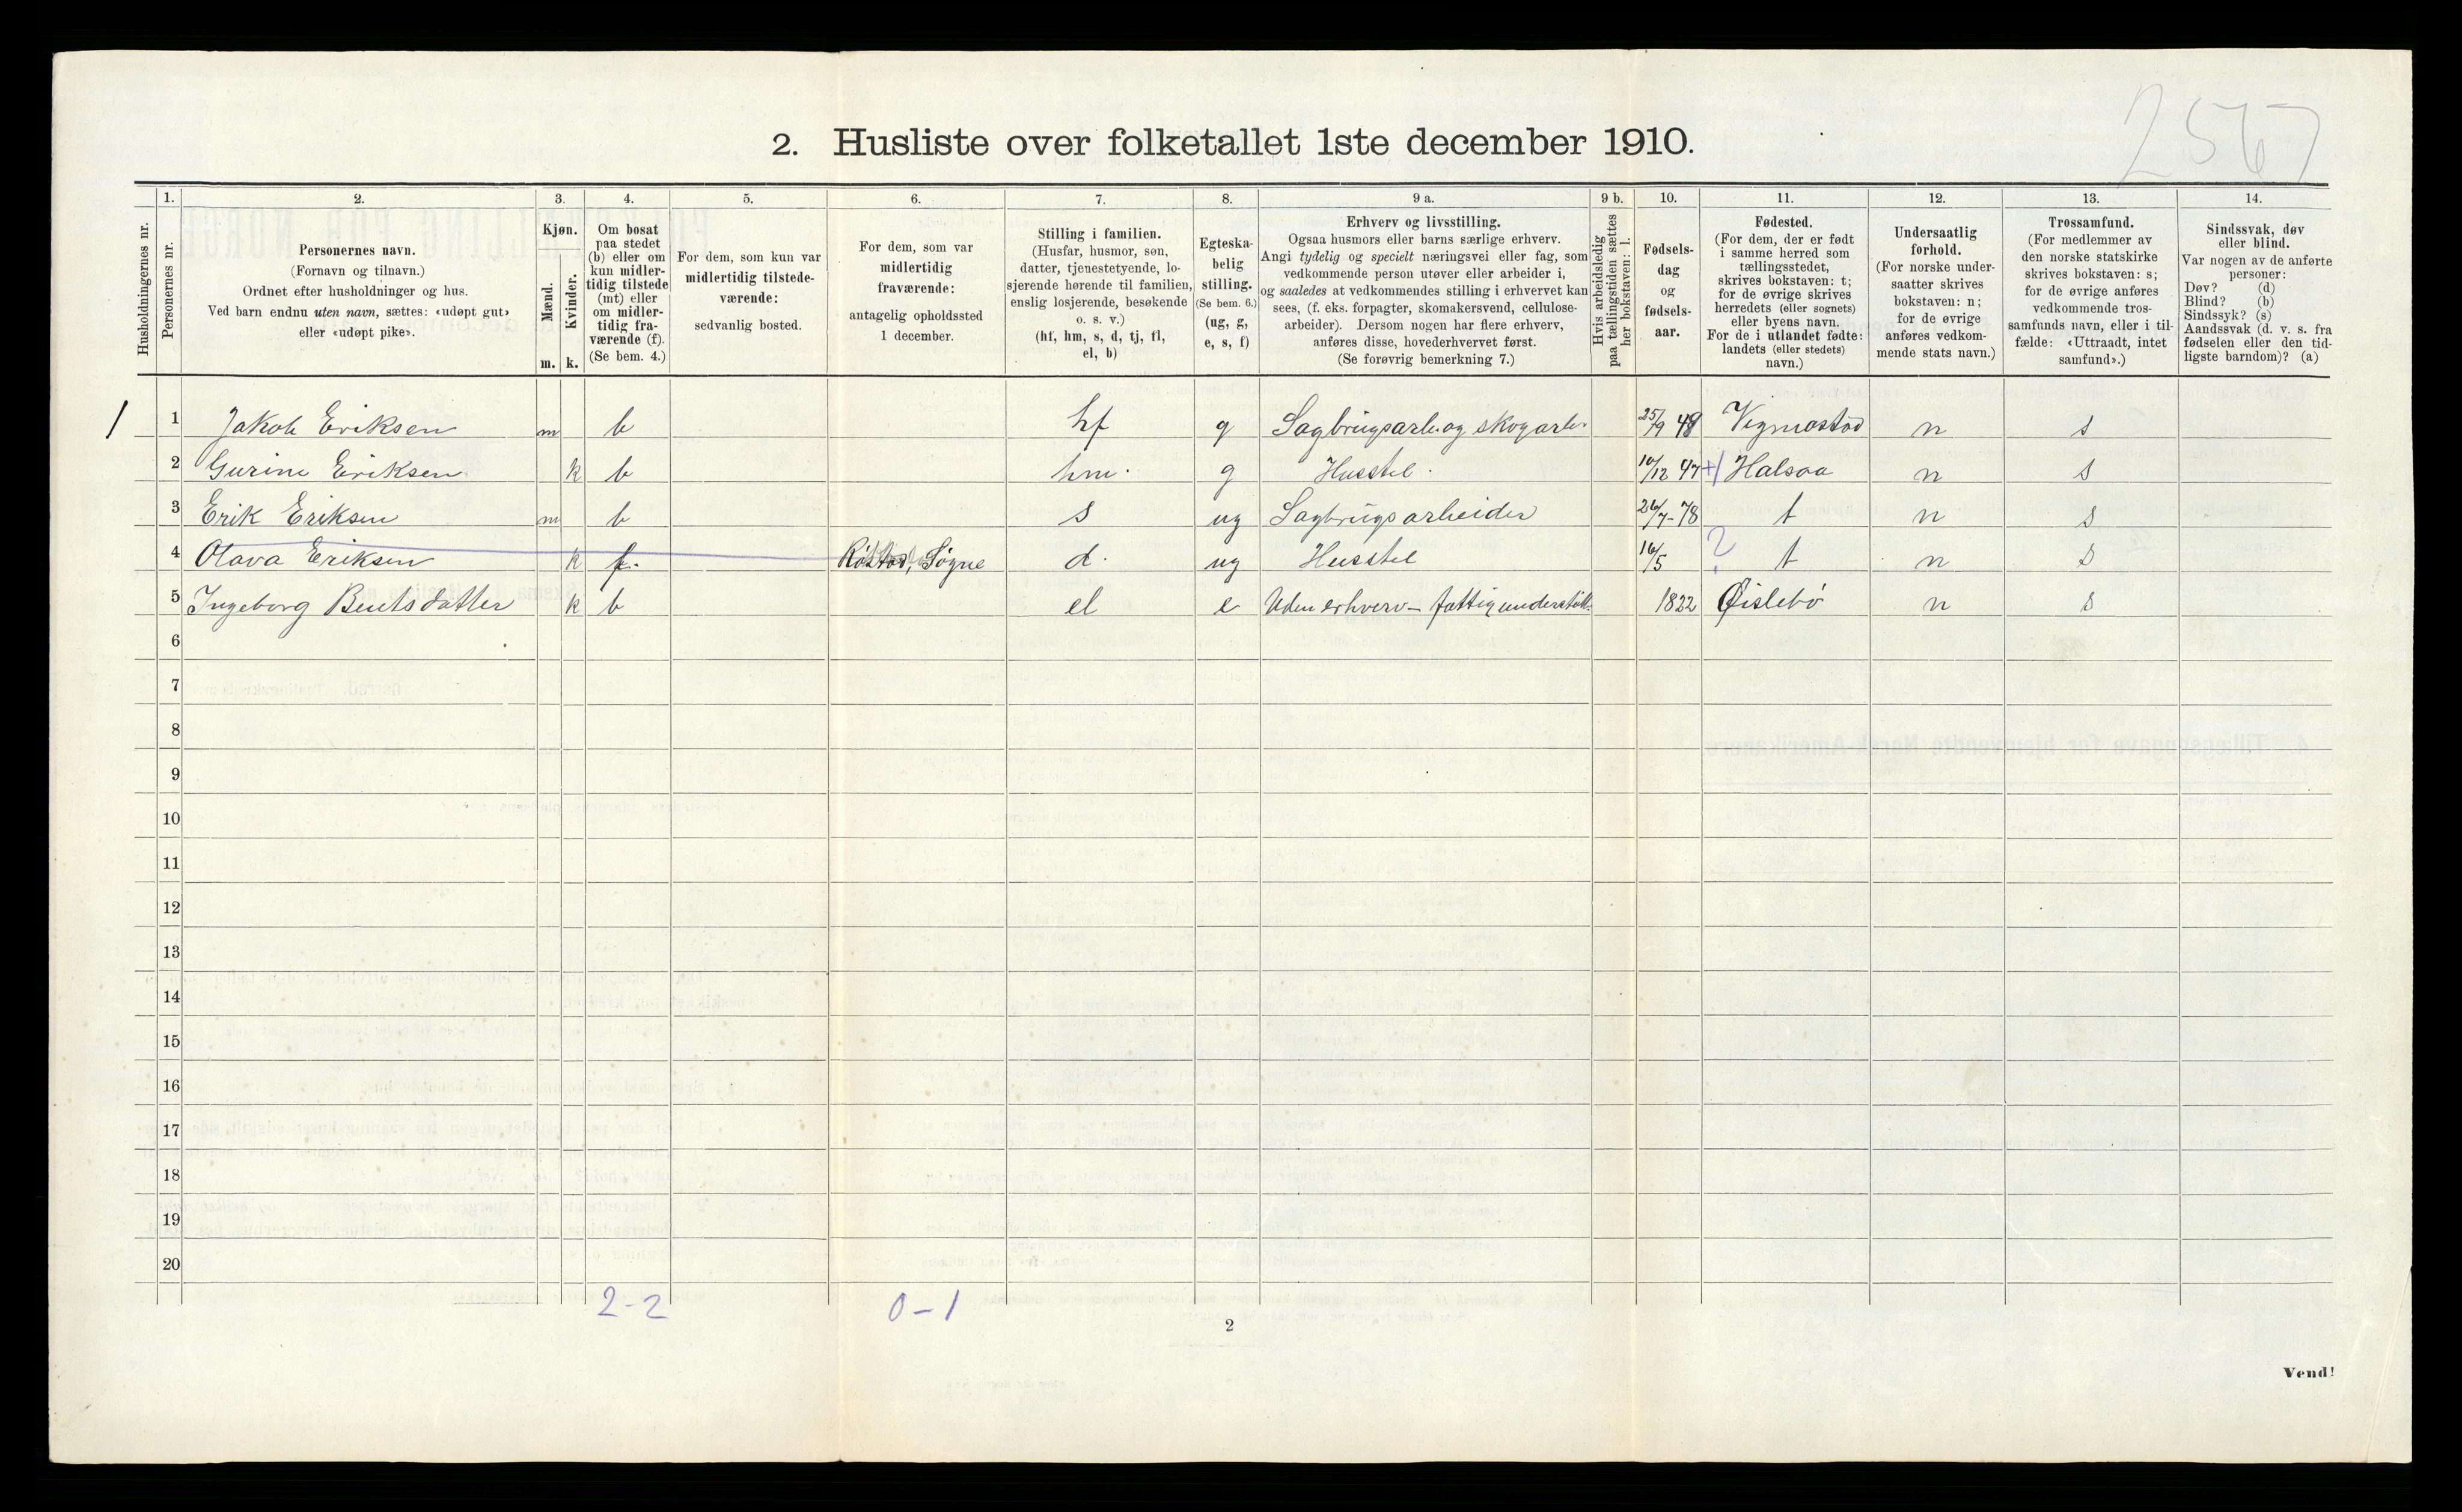 2567
2. Husliste over folketallet 1ste december 1910.
Husholdningernes nr.
1.
Personernes nr.
2.
Personernes navn.
(Fornavn og tilnavn.)
Ordnet efter husholdninger og hus.
Ved barn endnu uten navn, sættes: «udøpt gut»
eller «udøpt pike».
3.
Kjøn.
Mænd.
m.
Kvinder.
k.
4.
Om bosat
paa stedet
(b) eller om
kun midler-
tidig tilstede
(mt) eller
om midler-
tidig fra-
værende (f).
(Se bem. 4.)
5.
For dem, som kun var
midlertidig tilstede-
værende:
sedvanlig bosted.
6.
For dem, som var
midlertidig
fraværende:
antagelig opholdssted
1 december.
7.
Stilling i familien.
(Husfar, husmor, søn,
datter, tjenestetyende, lo-
sjerende hørende til familien,
enslig losjerende, besøkende
o. s. v.)
(hf, hm, s, d, tj, fl,
el, b)
8.
Egteska-
belig
stilling.
(Se bem. 6.)
(ug, g,
e, s, f)
9 a.
Erhverv og livsstilling.
Ogsaa husmors eller barns særlige erhverv.
Angi tydelig og specielt næringsvei eller fag, som
vedkommende person utøver eller arbeider i,
og saaledes at vedkommendes stilling i erhvervet kan
sees, (f. eks. forpagter, skomakersvend, cellulose-
arbeider). Dersom nogen har flere erhverv,
anføres disse, hovederhvervet først.
(Se forøvrig bemerkning 7.)
9 b.
Hvis arbeidsledig
paa tællingstiden sættes
her bokstaven: l.
10.
Fødsels-
dag
og
fødsels-
aar.
11.
Fødested.
(For dem, der er født
i samme herred som
tællingsstedet,
skrives bokstaven: t;
for de øvrige skrives
herredets (eller sognets)
eller byens navn.
For de i utlandet fødte:
landets (eller stedets)
navn.)
12.
Undersaatlig
forhold.
(For norske under-
saatter skrives
bokstaven: n;
for de øvrige
anføres vedkom-
mende stats navn.)
13.
Trossamfund.
(For medlemmer av
den norske statskirke
skrives bokstaven: s;
for de øvrige anføres
vedkommende tros-
samfunds navn, eller i til-
fælde: «Uttraadt, intet
samfund».)
14.
Sindssvak, døv
eller blind.
Var nogen av de anførte
personer:
Døv? (d)
Blind? (b)
Sindssyk? (s)
Aandssvak (d. v. s. fra
fødselen eller den tid-
ligste barndom)? (a)
1 1 Jakob Eriksen m b hf g Sagbrugsarb. og skogarb. 25/9 48 Vigmostad n s
2 Gurine Eriksen k b hm. g Husstel. 10/12 47 + Halsaa n s
3 Erik Eriksen m b s ug Sagbrugsarbeider 26/7-78 t n s
4 Olava Eriksen k f. Søgne d. ug Husstel 16/5 ? t n s
5 Ingeborg Bentsdatter k b el e Uden erhverv – fattigunderstøtt. 1822 Øislebø n s
6
7
8
9
10
11
12
13
14
15
16
17
18
19
20
2-2 0-1
2
Vend!